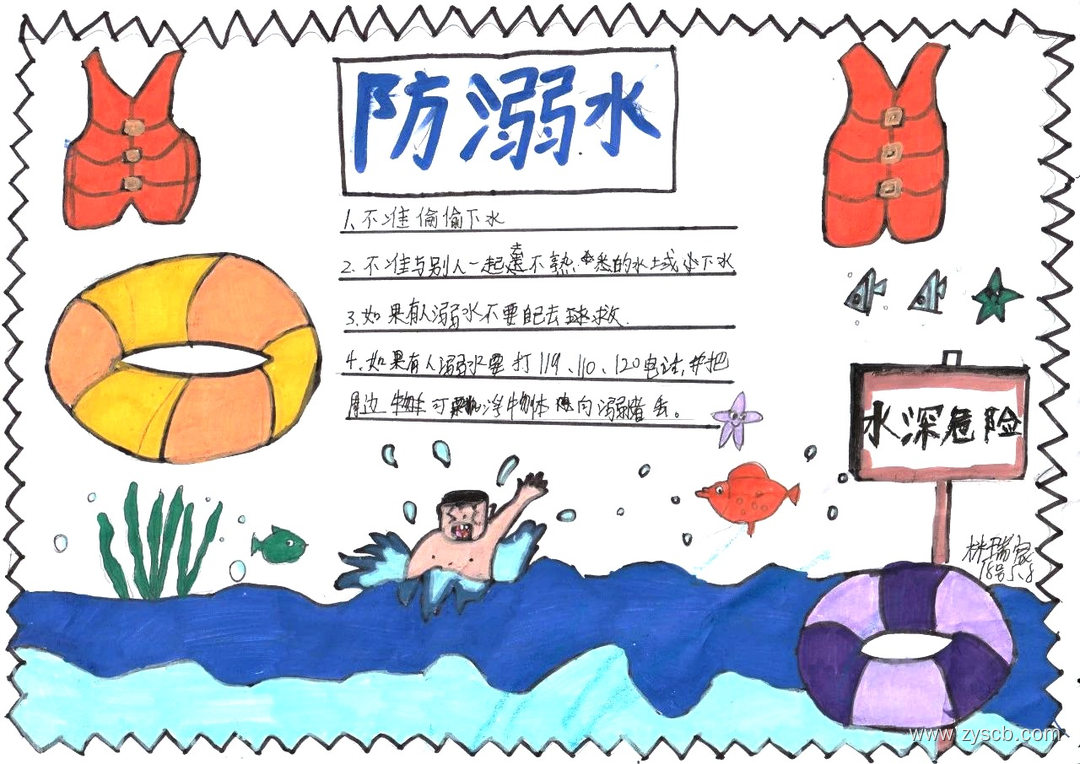 防溺水
1、不准偷偷下水
2、不准与别人一起去不熟悉的水域 下水
3、如果有人溺水不要自己去 救
4、如果有人溺水要打119、110、120电话,并把
周边 物 可 浮物体 向溺 者丢。
水深危险
林瑞家
18号 5.8
www.zyscb.com